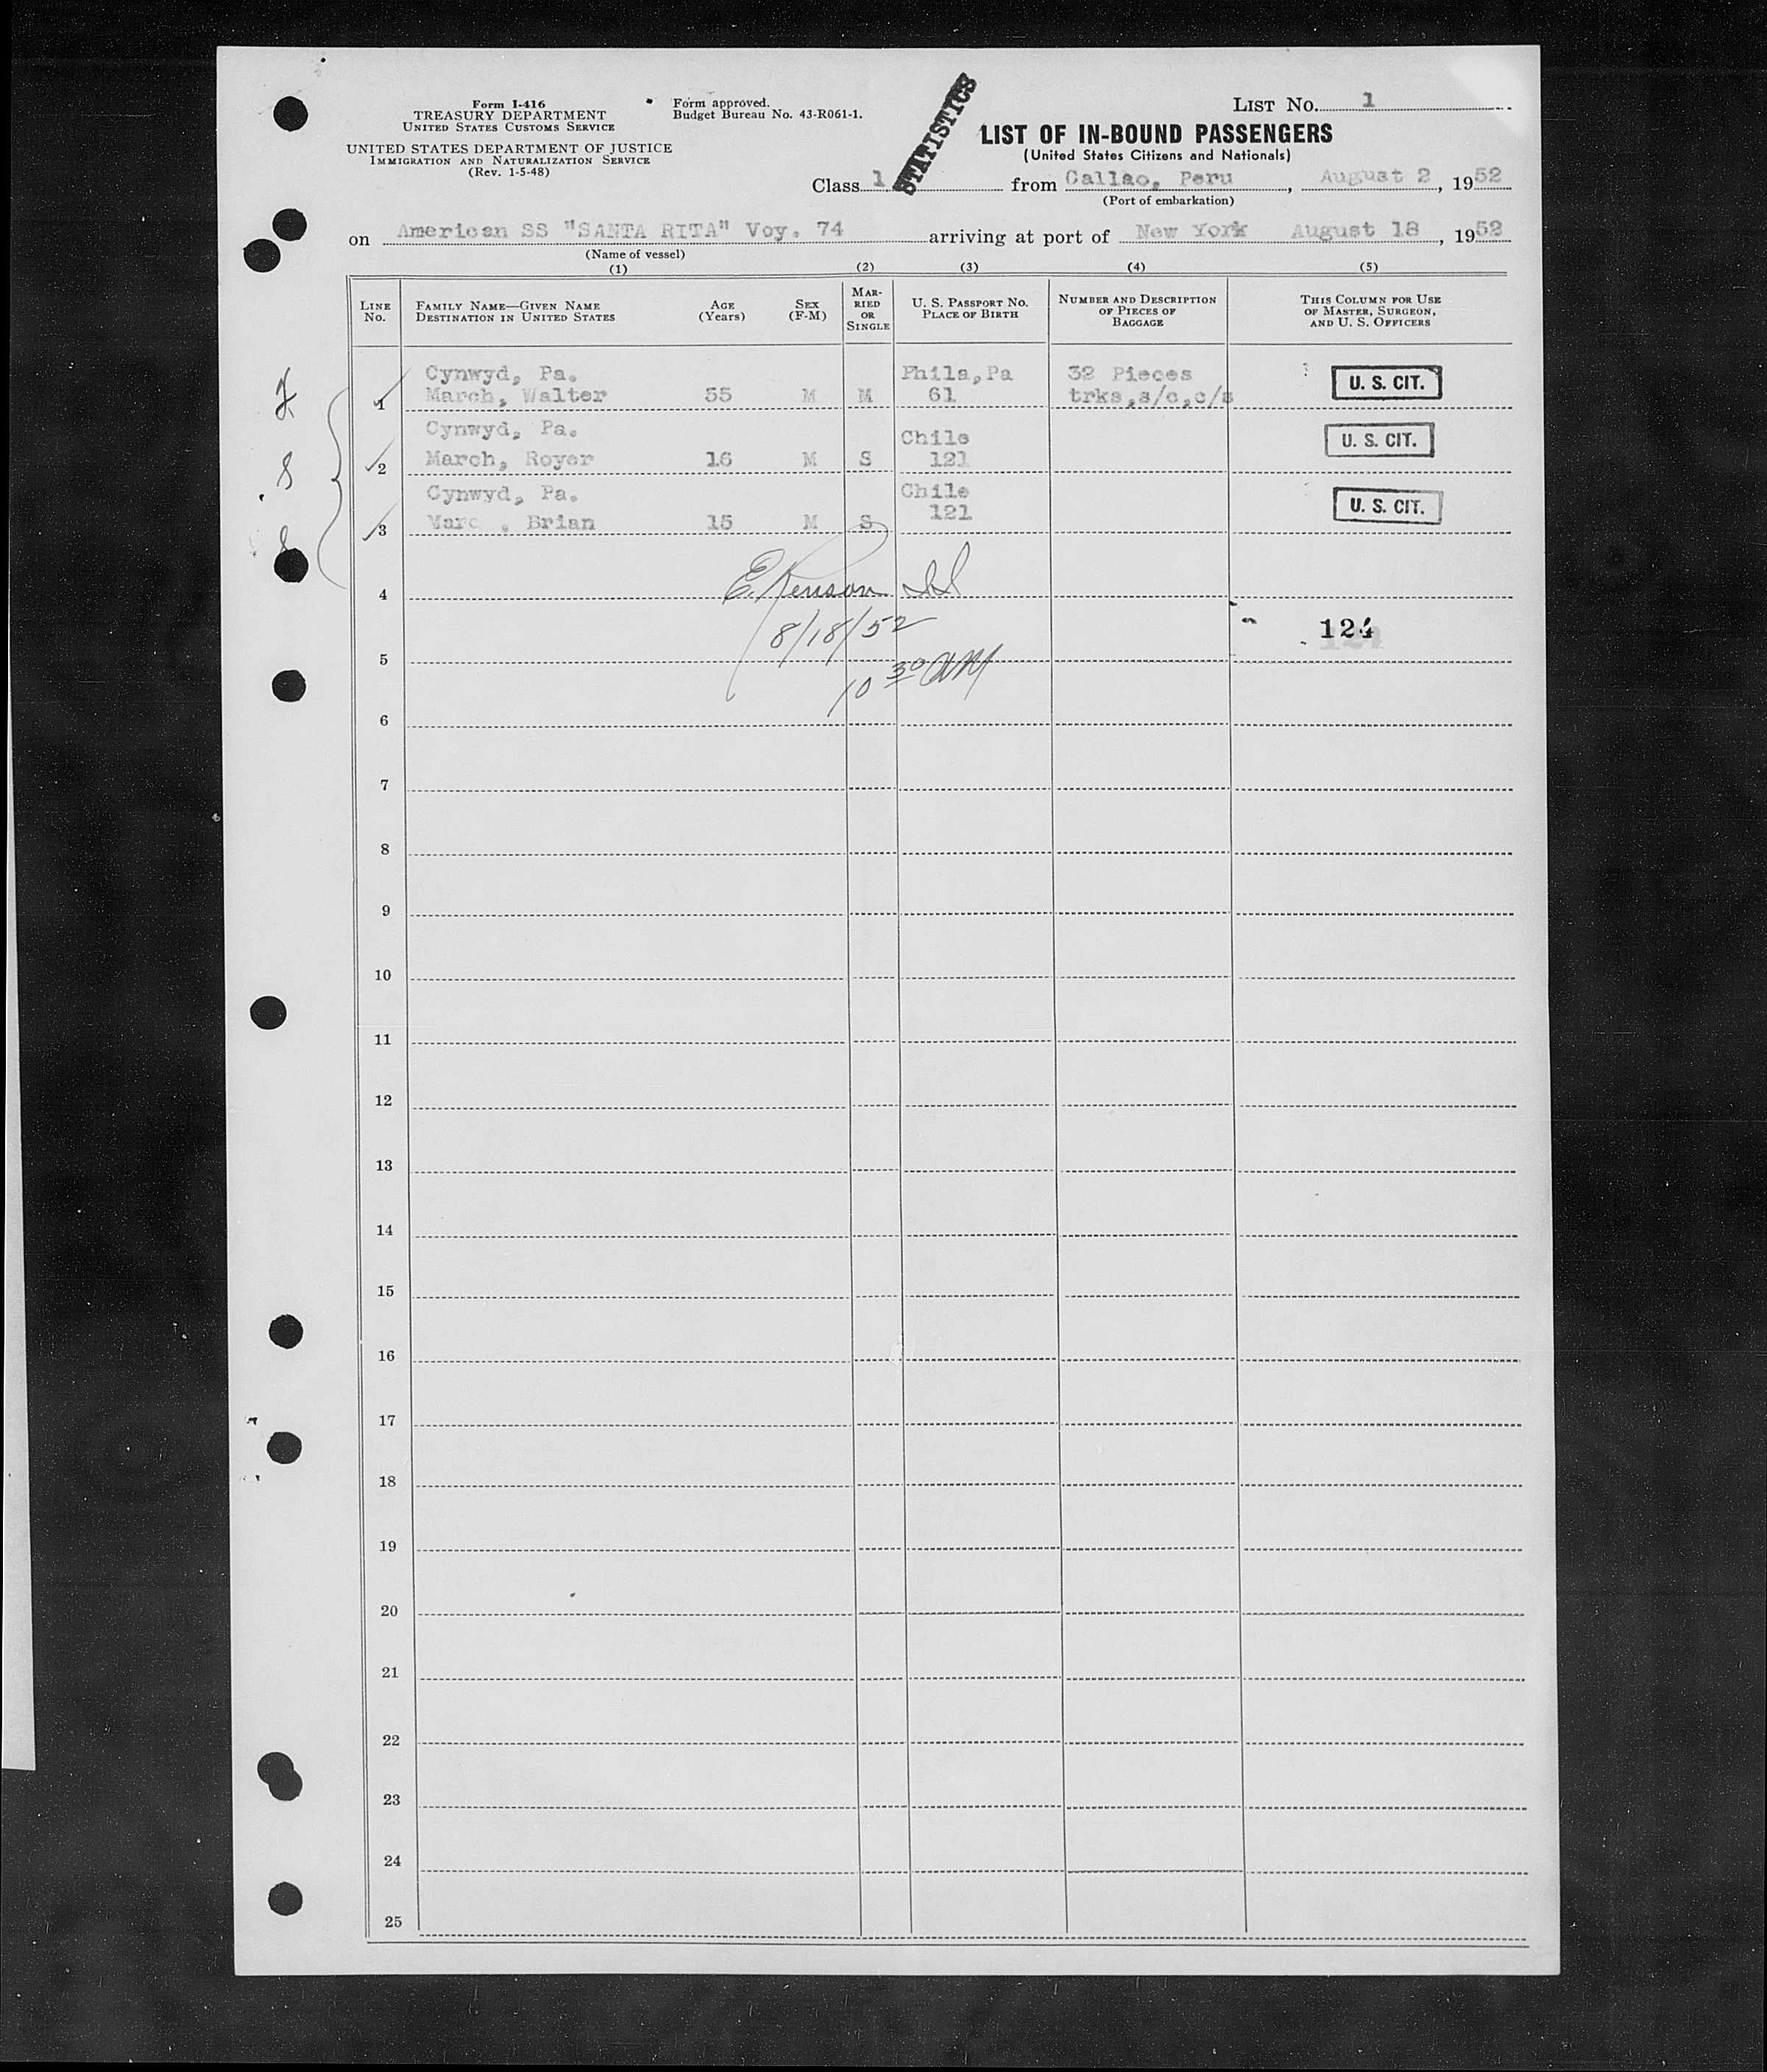 Form I-416
TREASURY DEPARTMENT
UNITED STATES CUSTOMS SERVICE
UNITED STATES DEPARTMENT OF JUSTICE
IMMIGRATION AND NATURALIZATION SERVICE
(Rev. 1-5-48)
Form approved.
Budget Bureau No. 43-R061-1.
STATISTICS
LIST No. 1
LIST OF IN-BOUND PASSENGERS
(United States Citizens and Nationals)
Class 1 from Callao, Peru, August 2, 1952
(Port of embarkation)
on American SS "SANTA RITA" Voy. 74 arriving at port of New York August 18, 1952
(Name of vessel)
(1) (2) (3) (4) (5)
LINE No. FAMILY NAME—GIVEN NAME DESTINATION IN UNITED STATES AGE (Years) SEX (F-M) MARRIED OR SINGLE U. S. PASSPORT No. PLACE OF BIRTH NUMBER AND DESCRIPTION OF PIECES OF BAGGAGE THIS COLUMN FOR USE OF MASTER, SURGEON, AND U. S. OFFICERS
Cynwyd, Pa. Phila,Pa 32 Pieces U. S. CIT.
1 March, Walter 55 M M 61 trks,s/c,c/s
Cynwyd, Pa. Chile U. S. CIT.
2 March, Royer 16 M S 121
Cynwyd, Pa. Chile U. S. CIT.
3 Marc , Brian 15 M S 121
4 E. Kenson II
8/18/52 124
5
10 30 AM
6
7
8
9
10
11
12
13
14
15
16
17
18
19
20
21
22
23
24
25